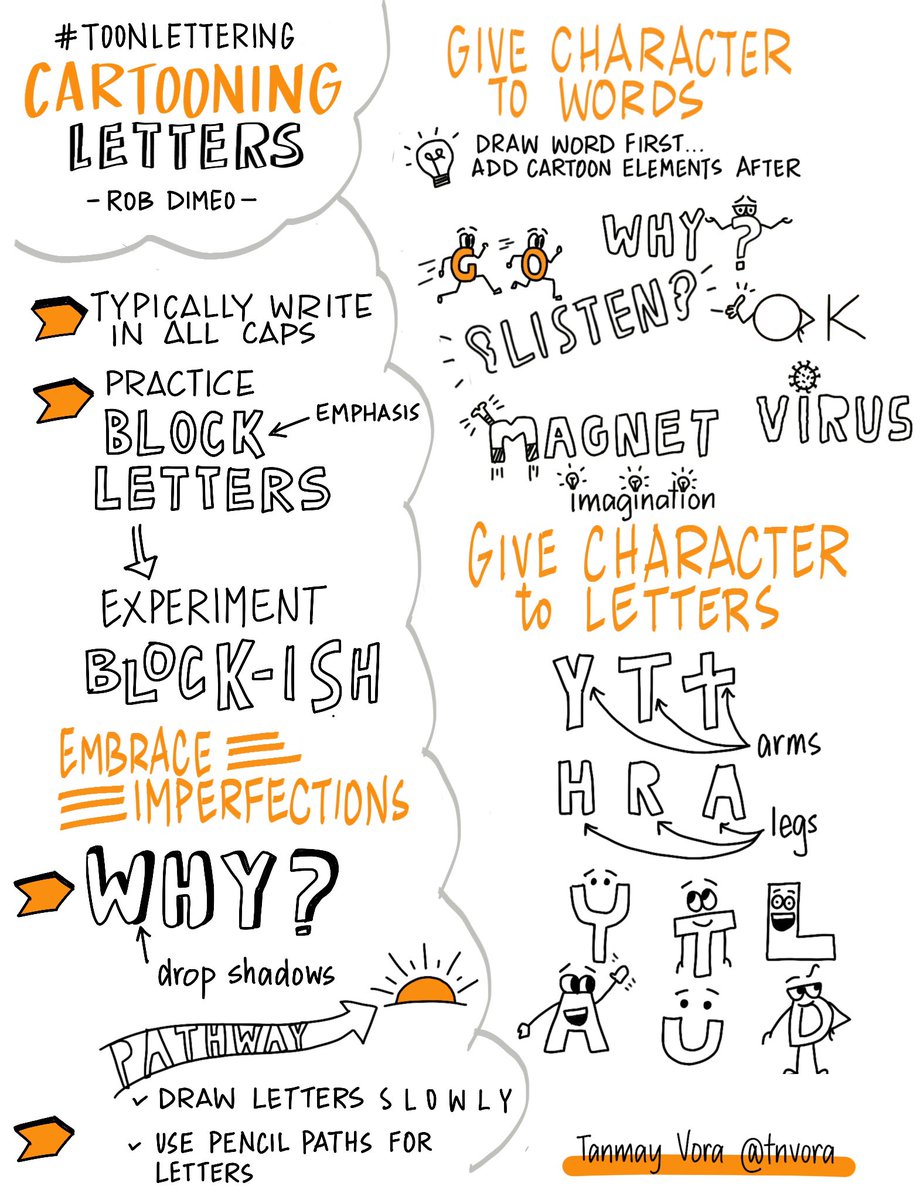 #TOONLETTERING
CARTOONING
LETTERS
- ROB DIMEO -
TYPICALLY WRITE
IN ALL CAPS
PRACTICE
BLOCK
EMPHASIS
LETTERS
EXPERIMENT
BLOCK-ISH
EMBRACE
IMPERFECTIONS
WHY?
drop shadows
PATHWAY
✓ DRAW LETTERS SLOWLY
✓ USE PENCIL PATHS FOR
LETTERS
GIVE CHARACTER
TO WORDS
DRAW WORD FIRST...
ADD CARTOON ELEMENTS AFTER
GO
WHY?
LISTEN?
OK
MAGNET
VIRUS
imagination
GIVE CHARACTER
to LETTERS
Y T t
arms
H R A
legs
Y T L
A U D
Tanmay Vora @tnvora